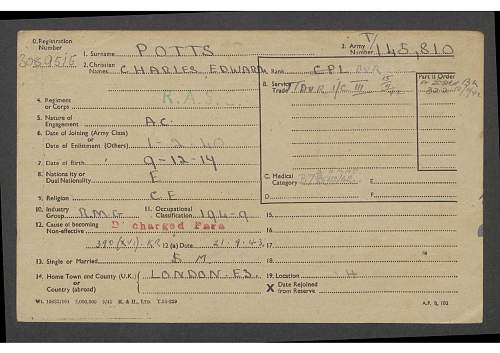 0. Registration Number
3089515
1. Surname POTTS
3. Army Number T/145,810
2. Christian Names CHARLES EDWARD
Rank CPL DVR
B. Service Trade
Part II Order
4. Regiment or Corps R.A.S.C.
5. Nature of Engagement AC
6. Date of Joining (Army Class) or Date of Enlistment (Others) 1-2-40
7. Date of Birth 9-12-14
8. Nationality or Dual Nationality E
C. Medical Category
E.
D.
F.
9. Religion CE
10. Industry Group R.M.G
11. Occupational Classification 194-9
15.
12. Cause of becoming Non-effective D charged Para
16.
390 (XVI) KR 12 (a) Date 21.9.43
17.
13. Single or Married M
18.
14. Home Town and County (U.K.) or Country (abroad) LONDON-E3.
19. Location
X Date Rejoined from Reserve
K. & H., Ltd.
A.F. B. 102